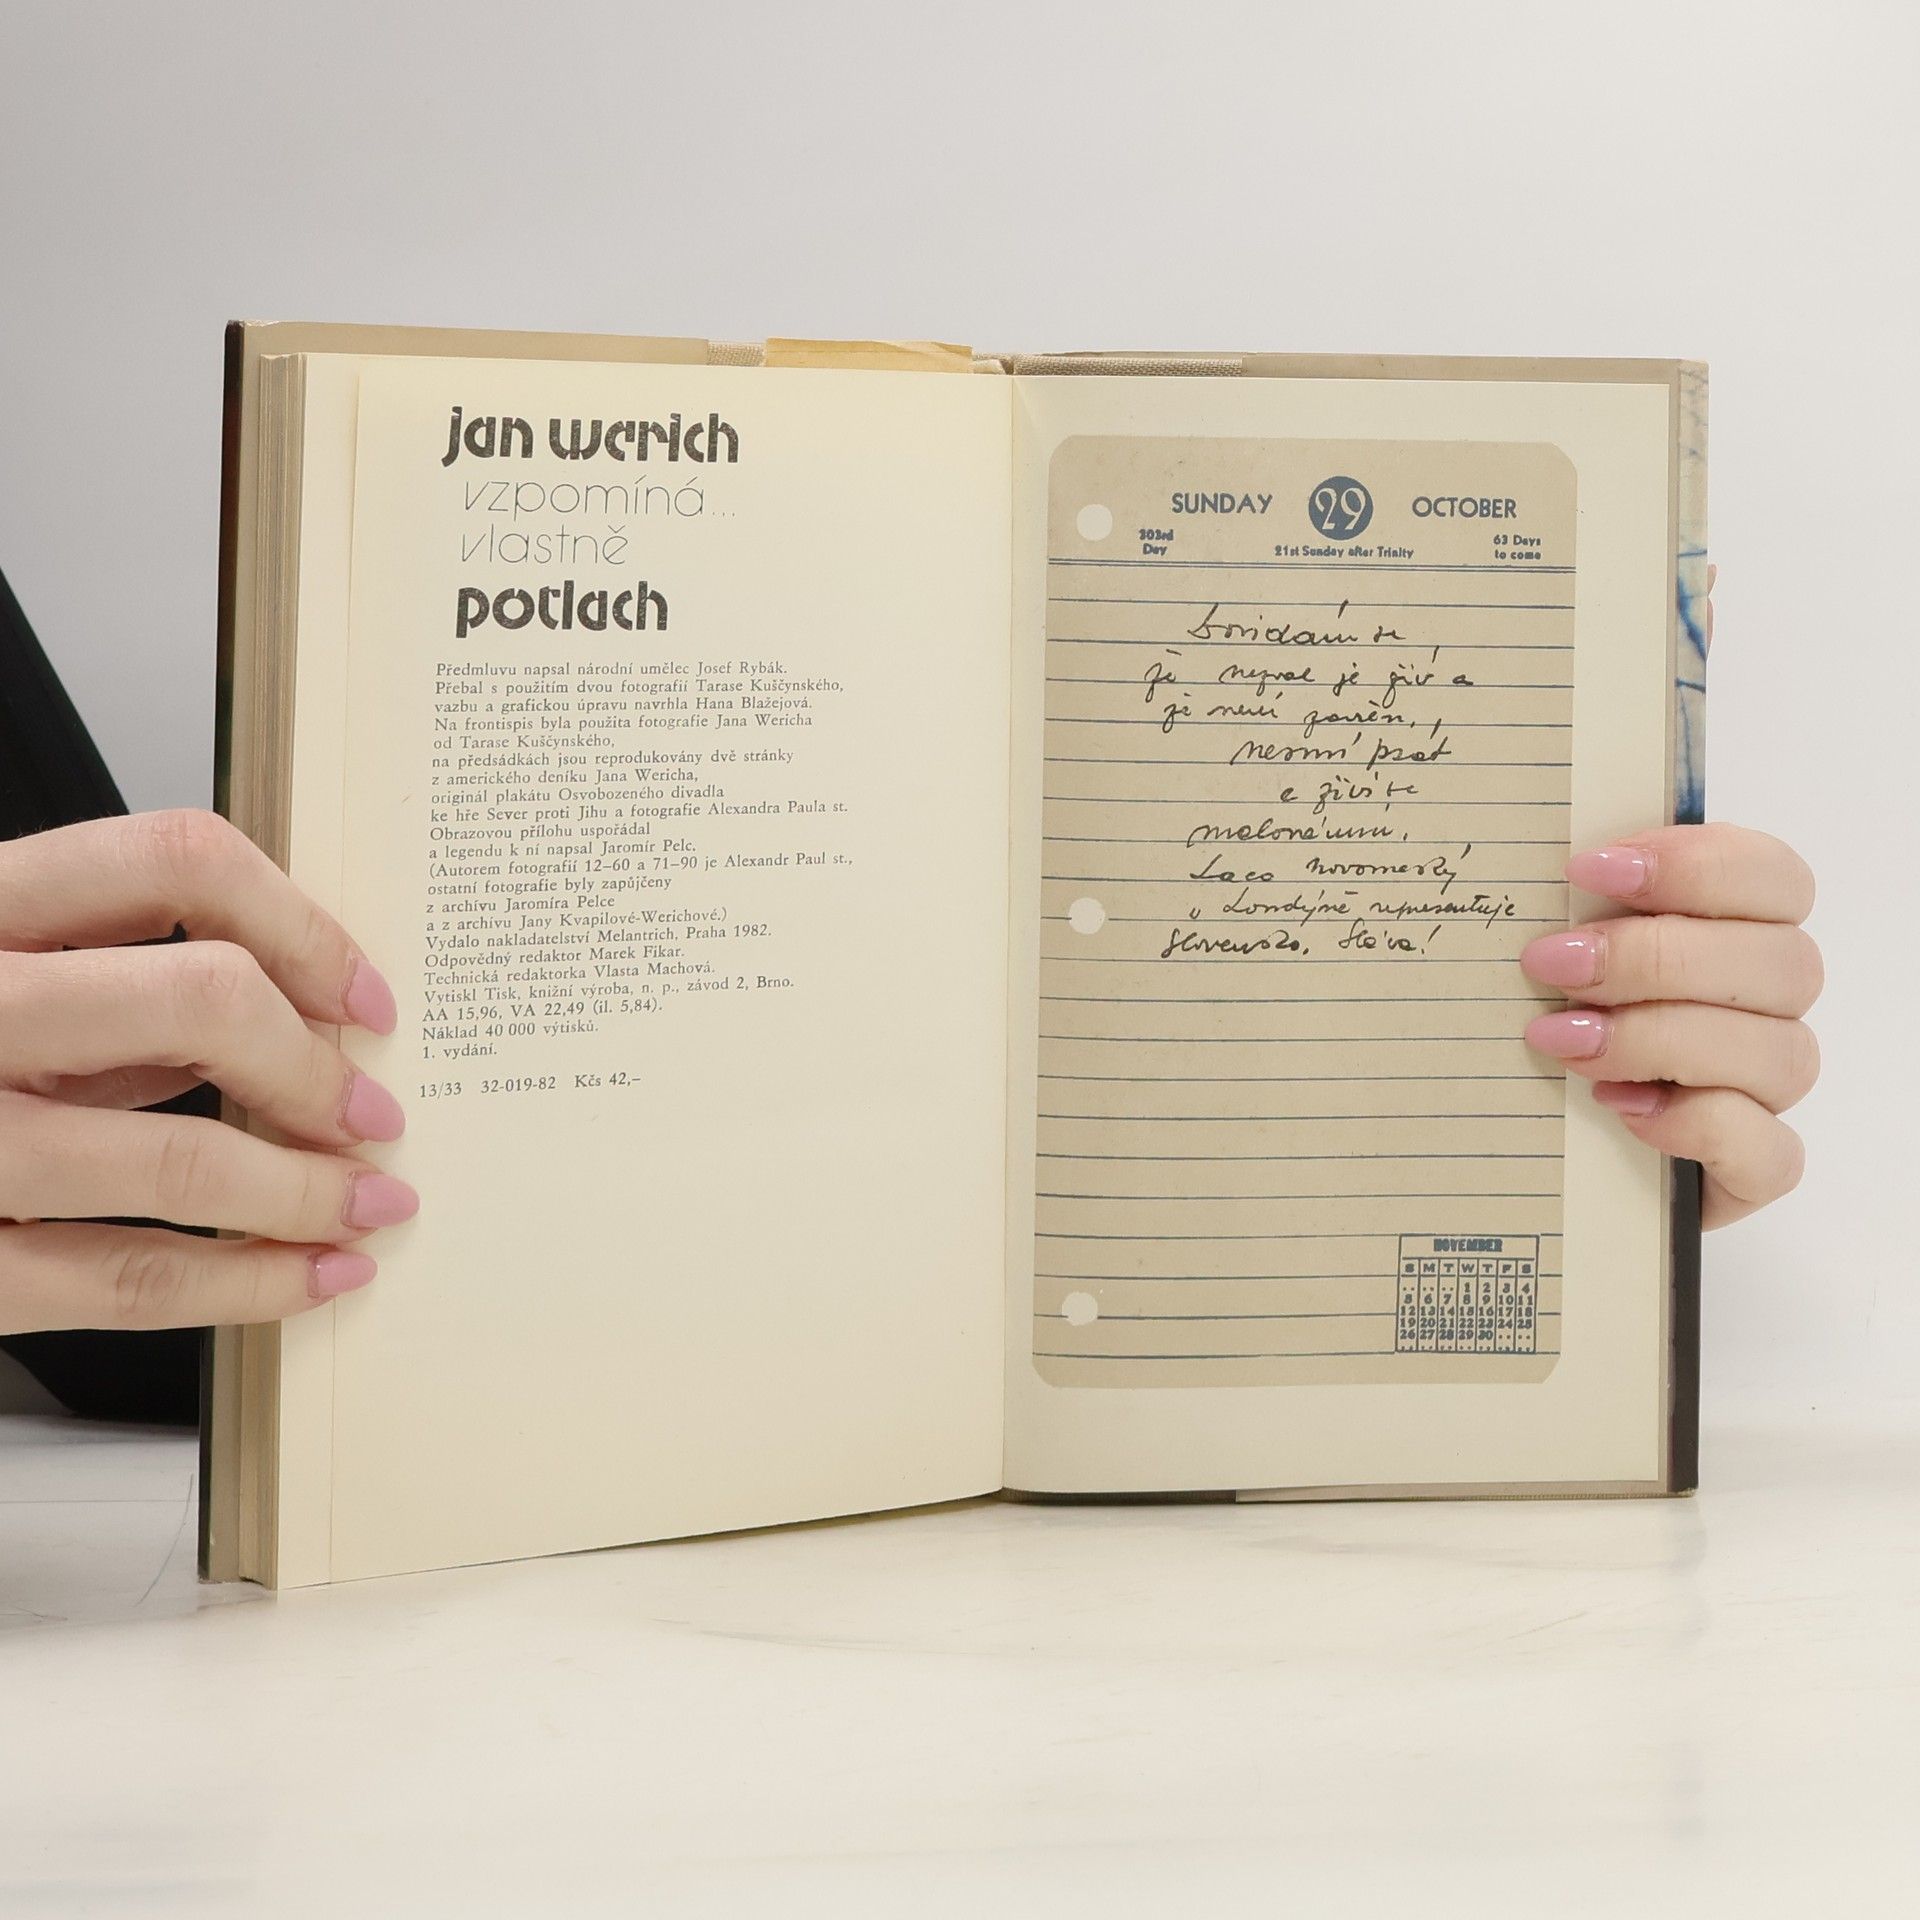 jan werich
vzpomíná...
vlastně
potlach
Předmluvu napsal národní umělec Josef Rybák.
Přebal s použitím dvou fotografií Tarase Kuščynského,
vazbu a grafickou úpravu navrhla Hana Blažejová.
Na frontispis byla použita fotografie Jana Wericha
od Tarase Kuščynského,
na předsádkách jsou reprodukovány dvě stránky
z amerického deníku Jana Wericha,
originál plakátu Osvobozeného divadla
ke hře Sever proti Jihu a fotografie Alexandra Paula st.
Obrazovou přílohu uspořádal
a legendu k ní napsal Jaromír Pelc.
(Autorem fotografií 12–60 a 71–90 je Alexandr Paul st.,
ostatní fotografie byly zapůjčeny
z archívu Jaromíra Pelce
a z archívu Jany Kvapilové-Werichové.)
Vydalo nakladatelství Melantrich, Praha 1982.
Odpovědný redaktor Marek Fikar.
Technická redaktorka Vlasta Machová.
Vytiskl Tisk, knižní výroba, n. p., závod 2, Brno.
AA 15,96, VA 22,49 (il. 5,84).
Náklad 40 000 výtisků.
1. vydání.
13/33 32-019-82 Kčs 42,–
SUNDAY 29 OCTOBER
302rd Day 21st Sunday after Trinity 63 Days to come
Dovídám se,
že nezval je živ a
že není zavřen,
nesmí psát
a živí se
malováním.
Laco Novomeský
v Londýně representuje
Slovensko. Sláva!
NOVEMBER
S M T W T F S
.. .. .. 1 2 3 4
5 6 7 8 9 10 11
12 13 14 15 16 17 18
19 20 21 22 23 24 25
26 27 28 29 30 .. ..